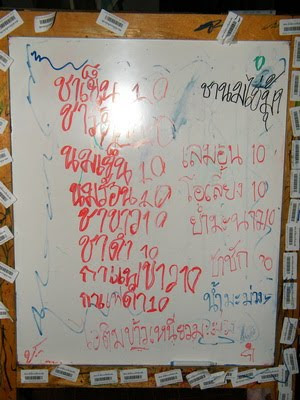 ชานมไข่มุก
ชาเย็น 10
นมเย็น 10 เลมอน 10
นมร้อน 10 โอเลี้ยง 10
ชาขาว 10 น้ำมะนาว 10
ชาดำ 10 ชาชัก 10
กาแฟขาว 10
กาแฟดำ 10 น้ำมะม่วง
ข้าวเหนียว